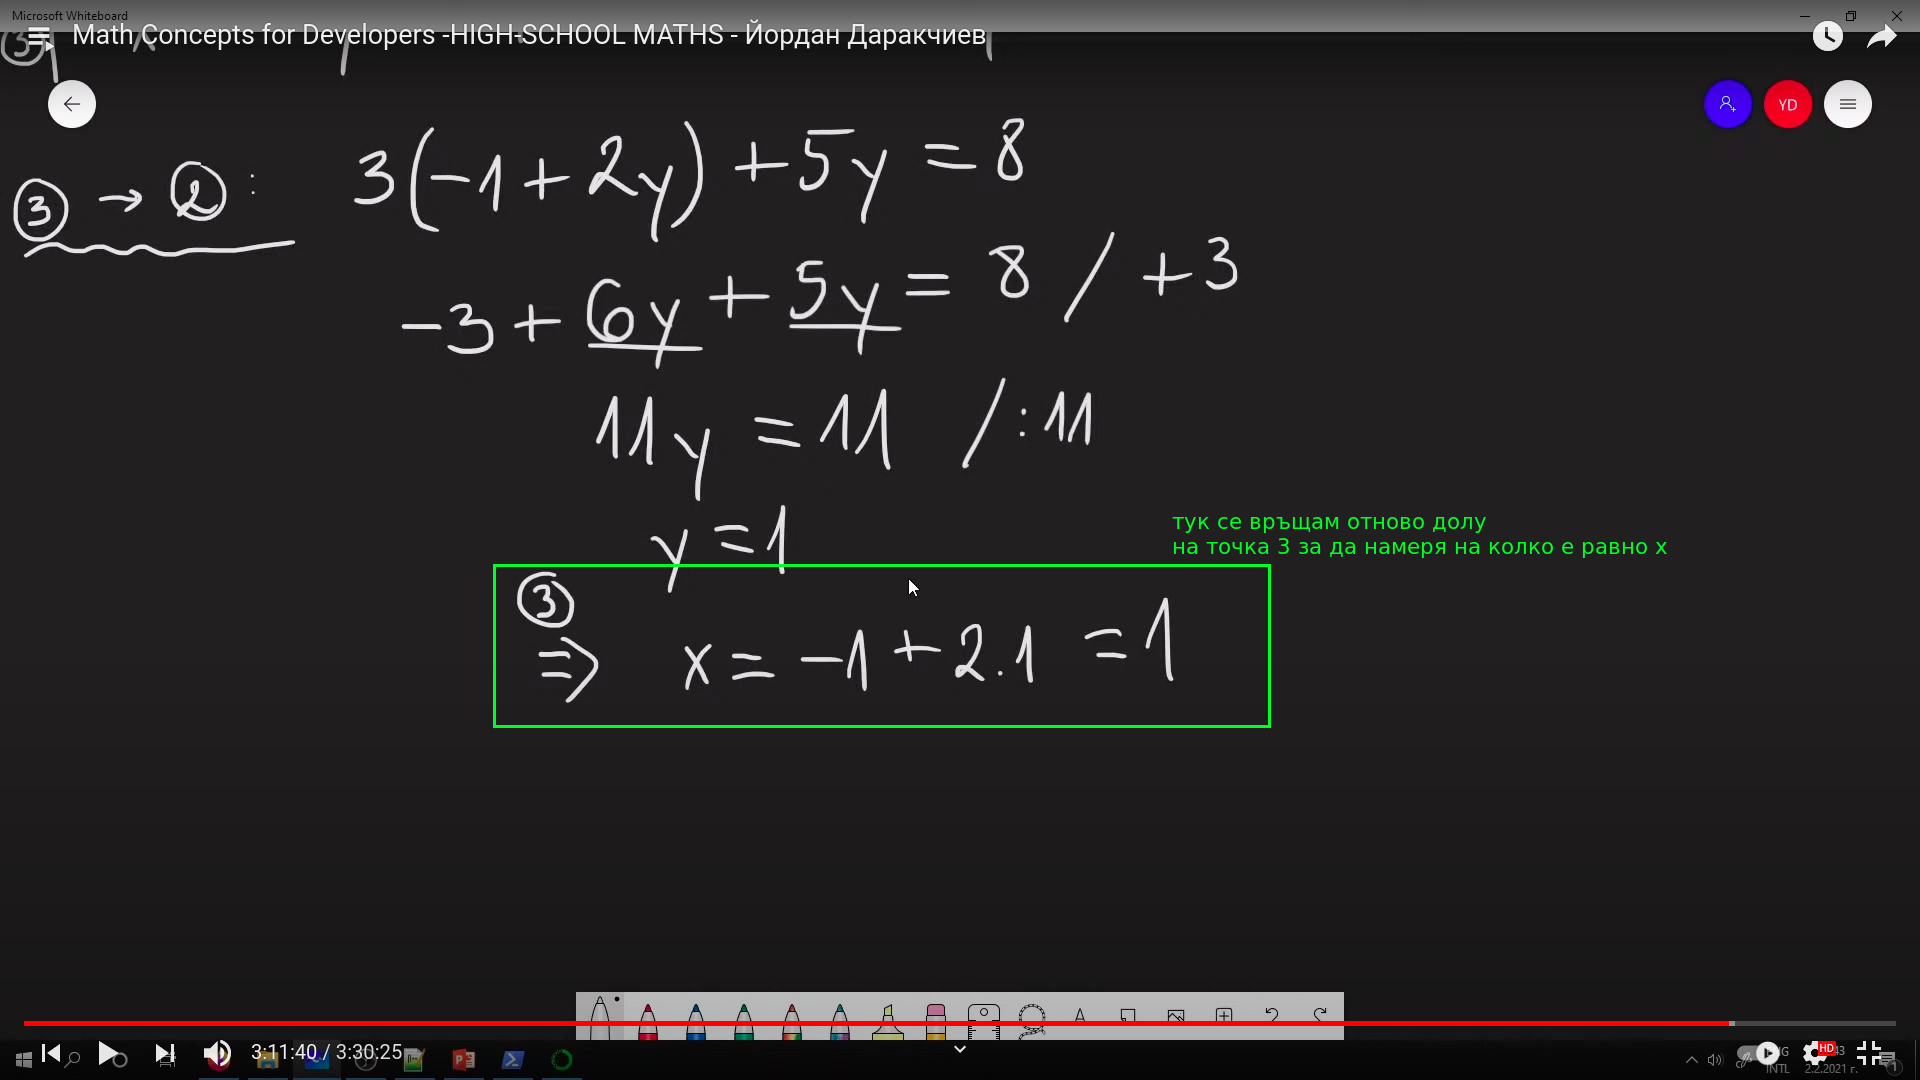 Microsoft Whiteboard
Math Concepts for Developers -HIGH-SCHOOL MATHS - Йордан Даракчиев
3
YD
3 → 2 : 3(-1+2y) +5y = 8
-3 + 6y + 5y = 8 / +3
11y = 11 / :11
y = 1
тук се връщам отново долу
на точка 3 за да намеря на колко е равно x
3
=> x = -1 + 2.1 = 1
3:11:40 / 3:30:25
HD
INTL
2.2.2021 г.